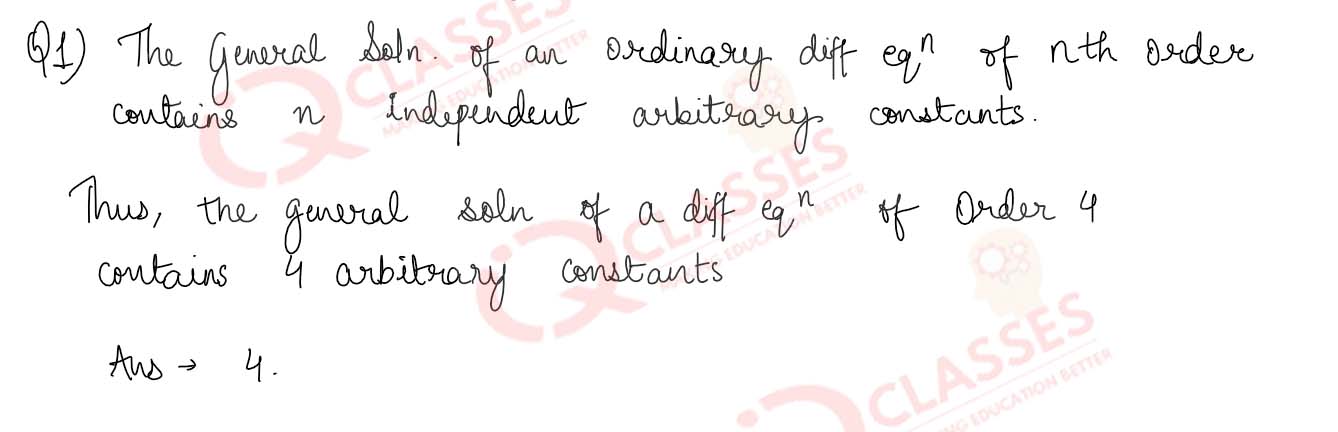 Q1) The General Soln. of an ordinary diff eqⁿ of nth order
contains n independent arbitrary constants.
Thus, the general soln of a diff eqⁿ of Order 4
contains 4 arbitrary constants
Ans → 4.
CLASSES
MAKING EDUCATION BETTER
CLASSES
MAKING EDUCATION BETTER
CLASSES
NG EDUCATION BETTER